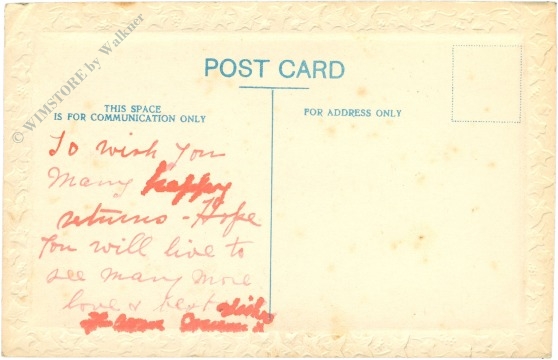 © WIMSTORE by Walkner
POST CARD
THIS SPACE
IS FOR COMMUNICATION ONLY
FOR ADDRESS ONLY
To wish you
Many happy
returns - Hope
you will live to
see many more
love & best wishes
from